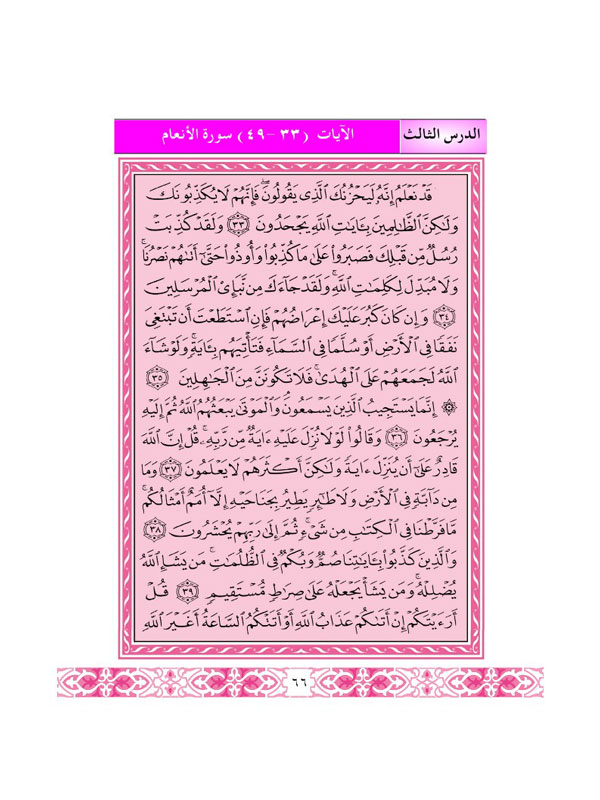 الدرس الثالث
الآيات (٣٣ -٤٩) سورة الأنعام
قَدْ نَعْلَمُ إِنَّهُۥ لَيَحْزُنُكَ ٱلَّذِى يَقُولُونَ ۖ فَإِنَّهُمْ لَا يُكَذِّبُونَكَ
وَلَٰكِنَّ ٱلظَّٰلِمِينَ بِـَٔايَٰتِ ٱللَّهِ يَجْحَدُونَ ٣٣ وَلَقَدْ كُذِّبَتْ
رُسُلٌ مِّن قَبْلِكَ فَصَبَرُوا۟ عَلَىٰ مَا كُذِّبُوا۟ وَأُوذُوا۟ حَتَّىٰٓ أَتَىٰهُمْ نَصْرُنَا ۚ
وَلَا مُبَدِّلَ لِكَلِمَٰتِ ٱللَّهِ ۚ وَلَقَدْ جَآءَكَ مِن نَّبَإِى۟ ٱلْمُرْسَلِينَ
٣٤ وَإِن كَانَ كَبُرَ عَلَيْكَ إِعْرَاضُهُمْ فَإِنِ ٱسْتَطَعْتَ أَن تَبْتَغِىَ
نَفَقًا فِى ٱلْأَرْضِ أَوْ سُلَّمًا فِى ٱلسَّمَآءِ فَتَأْتِيَهُم بِـَٔايَةٍ ۚ وَلَوْ شَآءَ
ٱللَّهُ لَجَمَعَهُمْ عَلَى ٱلْهُدَىٰ ۚ فَلَا تَكُونَنَّ مِنَ ٱلْجَٰهِلِينَ ٣٥
۞ إِنَّمَا يَسْتَجِيبُ ٱلَّذِينَ يَسْمَعُونَ ۘ وَٱلْمَوْتَىٰ يَبْعَثُهُمُ ٱللَّهُ ثُمَّ إِلَيْهِ
يُرْجَعُونَ ٣٦ وَقَالُوا۟ لَوْلَا نُزِّلَ عَلَيْهِ ءَايَةٌ مِّن رَّبِّهِۦ ۚ قُلْ إِنَّ ٱللَّهَ
قَادِرٌ عَلَىٰٓ أَن يُنَزِّلَ ءَايَةً وَلَٰكِنَّ أَكْثَرَهُمْ لَا يَعْلَمُونَ ٣٧ وَمَا
مِن دَآبَّةٍ فِى ٱلْأَرْضِ وَلَا طَٰٓئِرٍ يَطِيرُ بِجَنَاحَيْهِ إِلَّآ أُمَمٌ أَمْثَالُكُم ۚ
مَّا فَرَّطْنَا فِى ٱلْكِتَٰبِ مِن شَىْءٍ ۚ ثُمَّ إِلَىٰ رَبِّهِمْ يُحْشَرُونَ ٣٨
وَٱلَّذِينَ كَذَّبُوا۟ بِـَٔايَٰتِنَا صُمٌّ وَبُكْمٌ فِى ٱلظُّلُمَٰتِ ۗ مَن يَشَإِ ٱللَّهُ
يُضْلِلْهُ ۚ وَمَن يَشَأْ يَجْعَلْهُ عَلَىٰ صِرَٰطٍ مُّسْتَقِيمٍ ٣٩ قُلْ
أَرَءَيْتَكُمْ إِنْ أَتَىٰكُمْ عَذَابُ ٱللَّهِ أَوْ أَتَتْكُمُ ٱلسَّاعَةُ أَغَيْرَ ٱللَّهِ
٦٦